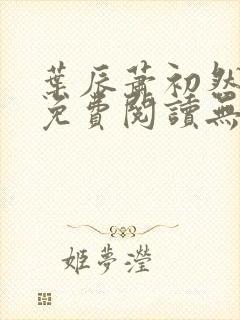 葉辰蕭初然
免費閱讀無
姬夢瀅